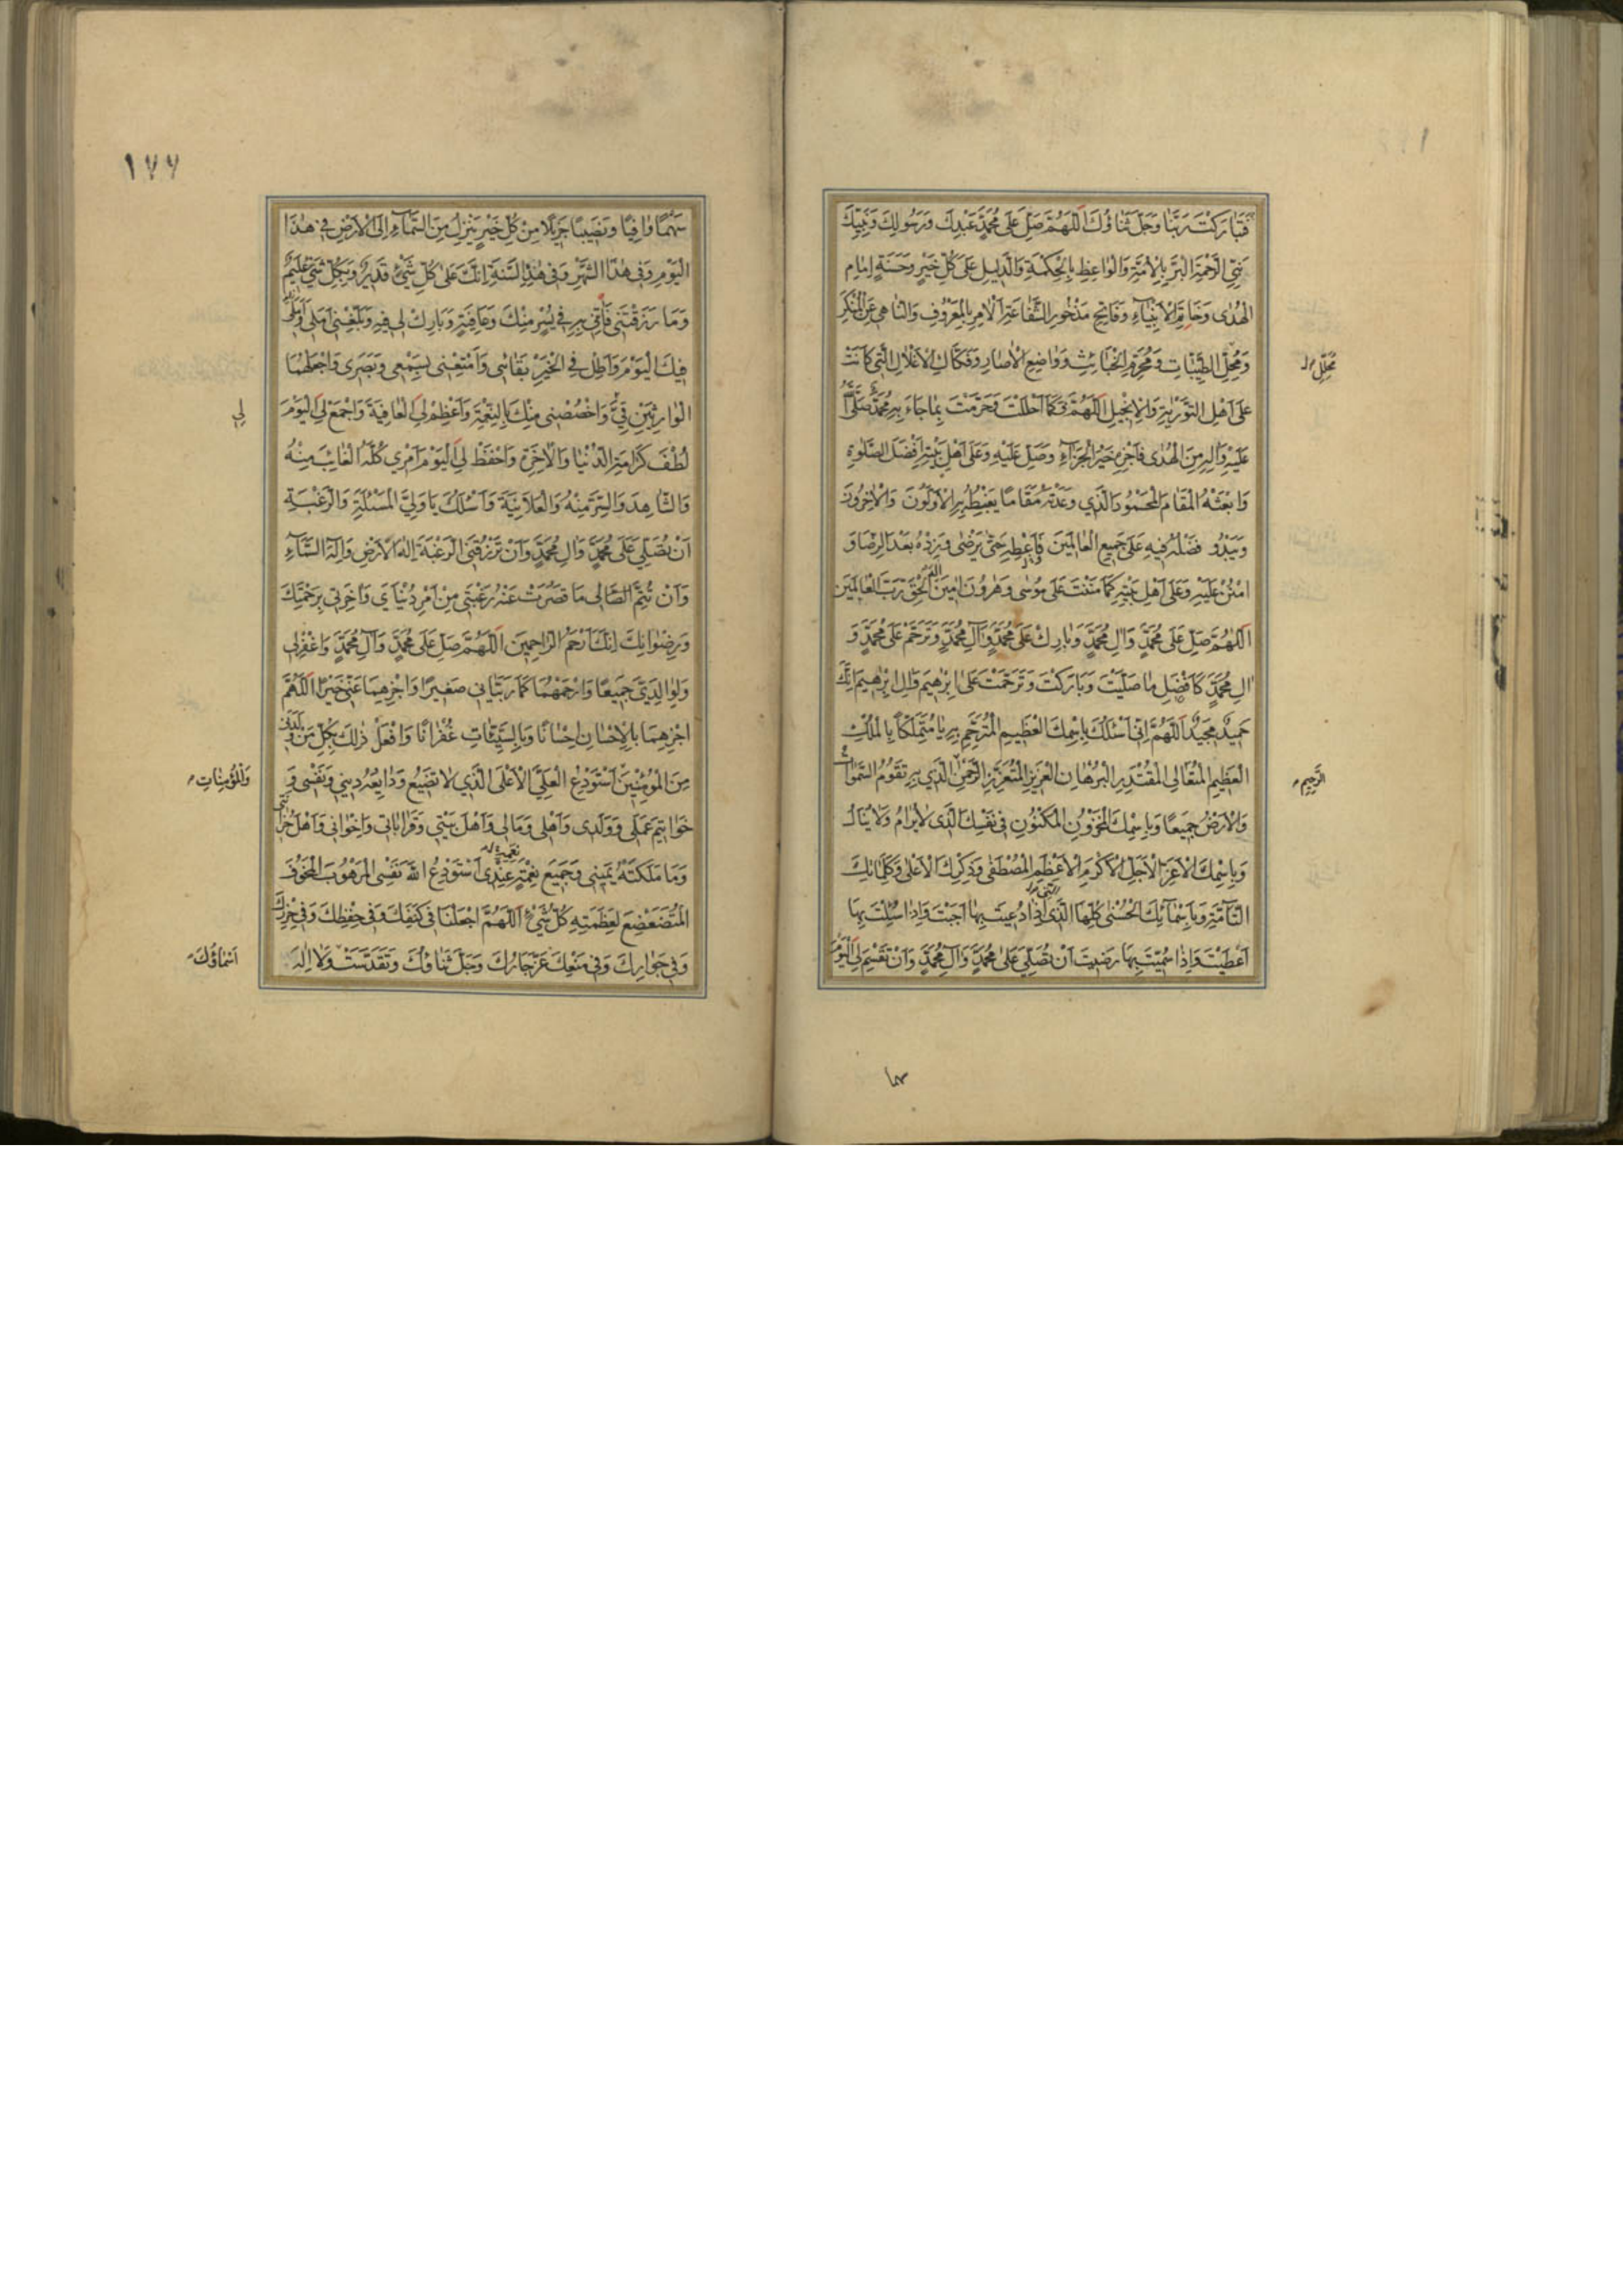 فَتَبَارَكْتَ رَبَّنَا وَجَلَّ ثَنَاؤُكَ اَللّٰهُمَّ صَلِّ عَلٰى مُحَمَّدٍ عَبْدِكَ وَرَسُولِكَ وَنَبِيِّكَ
نَبِيِّ الرَّحْمَةِ الْبَرِّ بِالْاُمَّةِ وَالْوَاعِظِ بِالْحِكْمَةِ وَالدَّلِيلِ عَلٰى كُلِّ خَيْرٍ وَحَسَنَةٍ اِمَامِ
الْهُدٰى وَخَاتَمِ الْاَنْبِيَآءِ وَفَاتِحِ مَذْخُورِ الشَّفَاعَةِ الْاٰمِرِ بِالْمَعْرُوفِ وَالنَّاهِي عَنِ الْمُنْكَرِ
وَمُحِلِّ الطَّيِّبَاتِ وَمُحَرِّمِ الْخَبَائِثِ وَوَاضِعِ الْاٰصَارِ وَفَكَّاكِ الْاَغْلَالِ الَّتِي كَانَتْ
مُحَلِّلِ
عَلٰى اَهْلِ التَّوْرٰيةِ وَالْاِنْجِيلِ اَللّٰهُمَّ وَكَمَا اَحْلَلْتَ وَحَرَّمْتَ بِمَا جَاءَ بِهِ مُحَمَّدٌ صَلَّى
عَلَيْهِ وَاٰلِهِ مِنَ الْهُدٰى فَاَجْزِهِ خَيْرَ الْجَزَآءِ وَصَلِّ عَلَيْهِ وَعَلٰى اَهْلِ بَيْتِهِ اَفْضَلَ الصَّلٰوةِ
وَابْعَثْهُ الْمَقَامَ الْمَحْمُودَ الَّذِي وَعَدْتَهُ مَقَامًا يَغْبِطُهُ بِهِ الْاَوَّلُونَ وَالْاٰخِرُونَ
وَيَبْدُو فَضْلُهُ فِيهِ عَلٰى جَمِيعِ الْعَالَمِينَ فَاَعْطِهِ حَتّٰى يَرْضٰى وَزِدْهُ بَعْدَ الرِّضَا وَ
امْنُنْ عَلَيْهِ وَعَلٰى اَهْلِ بَيْتِهِ كَمَا مَنَنْتَ عَلٰى مُوسٰى وَهٰرُونَ اٰمِينَ اِلٰهَ الْحَقِّ رَبَّ الْعَالَمِينَ
اَللّٰهُمَّ صَلِّ عَلٰى مُحَمَّدٍ وَاٰلِ مُحَمَّدٍ وَبَارِكْ عَلٰى مُحَمَّدٍ وَاٰلِ مُحَمَّدٍ وَتَرَحَّمْ عَلٰى مُحَمَّدٍ وَ
اٰلِ مُحَمَّدٍ كَاَفْضَلِ مَا صَلَّيْتَ وَبَارَكْتَ وَتَرَحَّمْتَ عَلٰى اِبْرٰهِيمَ وَاٰلِ اِبْرٰهِيمَ اِنَّكَ
حَمِيدٌ مَجِيدٌ اَللّٰهُمَّ اِنِّي اَسْئَلُكَ بِاسْمِكَ الْعَظِيمِ الْمُتَرَحَّمِ بِهِ يَا مُتَمَلِّكًا بِالْمُلْكِ
الْعَظِيمِ الْمُتَعَالِي الْمُقْتَدِرِ الْبُرْهَانِ الْعَزِيزِ الْمُتَعَزِّزِ الرَّحْمٰنِ الَّذِي بِهِ تَقُومُ السَّمٰوَاتُ
الرَّحِيمِ
وَالْاَرْضُ جَمِيعًا وَبِاسْمِكَ الْمَخْزُونِ الْمَكْنُونِ فِي نَفْسِكَ الَّذِي لَا يُرَامُ وَلَا يُنَالُ
وَبِاسْمِكَ الْاَعَزِّ الْاَجَلِّ الْاَكْرَمِ الْاَعْظَمِ الْمُصْطَفٰى وَذِكْرِكَ الْاَعْلٰى وَكَلِمَاتِكَ
التَّآمَّةِ وَبِاَسْمَآئِكَ الْحُسْنٰى كُلِّهَا الَّذِي اِذَا دُعِيتَ بِهَا اَجَبْتَ وَاِذَا سُئِلْتَ بِهَا
اَعْطَيْتَ وَاِذَا سُمِّيتَ بِهَا رَضِيتَ اَنْ تُصَلِّيَ عَلٰى مُحَمَّدٍ وَاٰلِ مُحَمَّدٍ وَاَنْ تَقْسِمَ لِيَ الْيَوْمَ
سهما
١٧٧
سَهْمًا وَافِيًا وَنَصِيبًا جَزِيلًا مِنْ كُلِّ خَيْرٍ يَنْزِلُ مِنَ السَّمَآءِ اِلَى الْاَرْضِ فِي هٰذَا
الْيَوْمِ وَفِي هٰذَا الشَّهْرِ وَفِي هٰذِهِ السَّنَةِ اِنَّكَ عَلٰى كُلِّ شَيْءٍ قَدِيرٌ وَبِكُلِّ شَيْءٍ عَلِيمٌ
وَمَا رَزَقْتَنِي فَاْتِنِي بِهِ فِي يُسْرٍ مِنْكَ وَعَافِيَةٍ وَبَارِكْ لِي فِيهِ وَبَلِّغْنِي اَمَلِي وَاَمَلِي
فِيكَ الْيَوْمَ وَاَطِلْ فِي الْخَيْرِ بَقَائِي وَاَمْتِعْنِي بِسَمْعِي وَبَصَرِي وَاجْعَلْهُمَا
الْوَارِثَيْنِ مِنِّي وَاخْصُصْنِي مِنْكَ بِالنِّعْمَةِ وَاَعْظِمْ لِيَ الْعَافِيَةَ وَاجْمَعْ لِيَ الْيَوْمَ
لِي
لُطْفَ كَرَامَةِ الدُّنْيَا وَالْاٰخِرَةِ وَاحْفَظْ لِيَ الْيَوْمَ اَمْرِي كُلَّهُ الْغَائِبَ مِنْهُ
وَالشَّاهِدَ وَالسِّرَّ مِنْهُ وَالْعَلَانِيَةَ وَاَسْئَلُكَ يَا وَلِيَّ الْمَسْئَلَةِ وَالرَّغْبَةِ
اَنْ تُصَلِّيَ عَلٰى مُحَمَّدٍ وَاٰلِ مُحَمَّدٍ وَاَنْ تَرْزُقَنِي الرَّغْبَةَ يَا اِلٰهَ الْاَرْضِ وَاِلٰهَ السَّمَآءِ
وَاَنْ تُتِمَّ لِي مَا قَصُرَتْ عَنْهُ رَغْبَتِي مِنْ اَمْرِ دُنْيَايَ وَاٰخِرَتِي بِرَحْمَتِكَ
وَرِضْوَانِكَ اِنَّكَ اَرْحَمُ الرَّاحِمِينَ اَللّٰهُمَّ صَلِّ عَلٰى مُحَمَّدٍ وَاٰلِ مُحَمَّدٍ وَاغْفِرْ لِي
وَلِوَالِدَيَّ جَمِيعًا وَارْحَمْهُمَا كَمَا رَبَّيَانِي صَغِيرًا وَاجْزِهِمَا عَنِّي خَيْرًا اَللّٰهُمَّ
اجْزِهِمَا بِالْاِحْسَانِ اِحْسَانًا وَبِالسَّيِّئَاتِ غُفْرَانًا وَافْعَلْ ذٰلِكَ بِكُلِّ مَنْ وَلَدَنِي
مِنَ الْمُؤْمِنِينَ اَسْتَوْدِعُ الْعَلِيَّ الْاَعْلَى الَّذِي لَا تَضِيعُ وَدَائِعُهُ دِينِي وَنَفْسِي وَ
وَالْمُؤْمِنَاتِ
خَوَاتِيمَ عَمَلِي وَوَلَدِي وَاَهْلِي وَمَالِي وَاَهْلَ بَيْتِي وَقَرَابَاتِي وَاِخْوَانِي وَاَهْلَ حُزَانَتِي
وَمَا مَلَكَتْهُ يَمِينِي وَجَمِيعَ نِعْمَتِهِ عِنْدِي اَسْتَوْدِعُ اللّٰهَ نَفْسِي الْمَرْهُوبَ الْمَخُوفَ
الْمُتَضَعْضِعَ لِعَظَمَتِهِ كُلُّ شَيْءٍ اَللّٰهُمَّ اجْعَلْنَا فِي كَنَفِكَ وَفِي حِفْظِكَ وَفِي حِرْزِكَ
وَفِي جَوَارِكَ وَفِي مَنْعِكَ عَزَّ جَارُكَ وَجَلَّ ثَنَاؤُكَ وَتَقَدَّسَتْ وَلَا اِلٰهَ
اَسْمَاؤُكَ